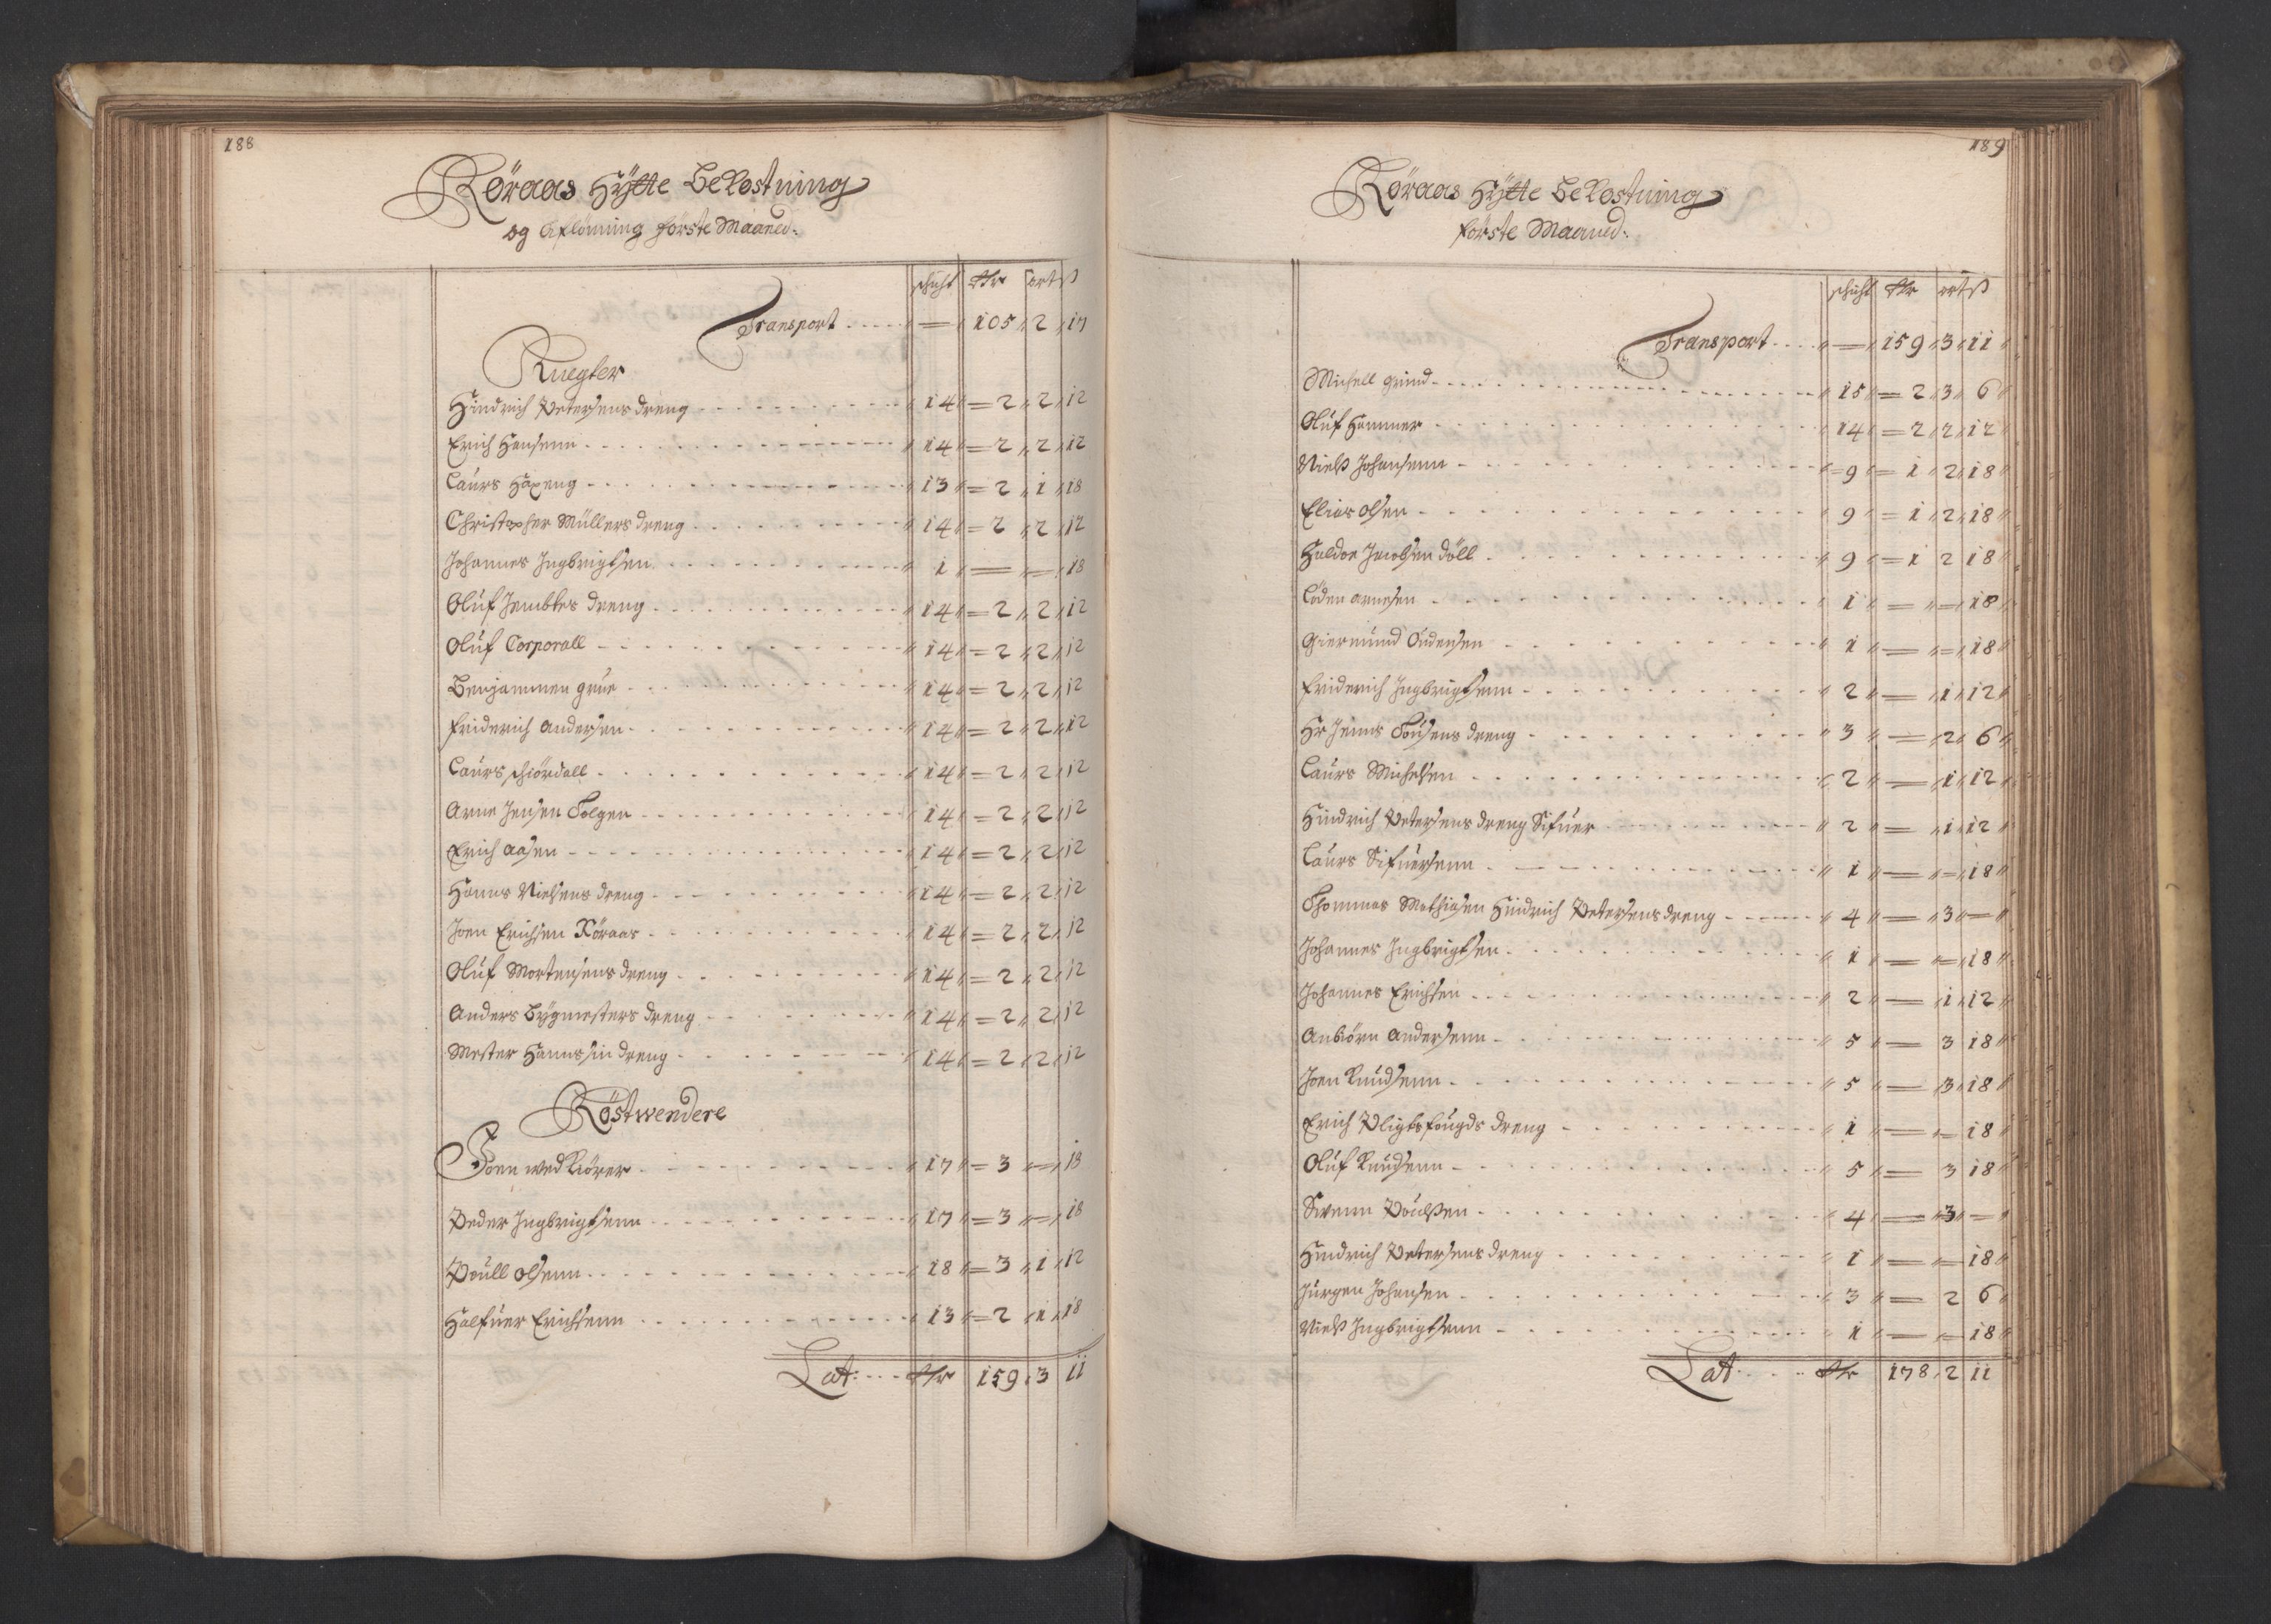 188
Röraas Hÿtte Bekostning
og Aflönning förste Maaned:
schicht Rdr ort ß
Transport . . . . „ = „ 105 „ 2 „ 17
Knegter
Hindrich Petersens dreng „ 14 „ = 2 „ 2 „ 12
Erich Hansenn „ 14 „ = 2 „ 2 „ 12
Laurs Haxeng „ 13 „ = 2 „ 1 „ 18
Christopher Müllers dreng „ 14 „ = 2 „ 2 „ 12
Johannes Ingbrigtsen „ 1 „ = „ = „ 18
Oluf Jembtes dreng „ 14 „ = 2 „ 2 „ 12
Oluf Corporall „ 14 „ = 2 „ 2 „ 12
Benjammen grue „ 14 „ = 2 „ 2 „ 12
Friderich Andersen „ 14 „ = 2 „ 2 „ 12
Laurs schiördall „ 14 „ = 2 „ 2 „ 12
Arne Jensen Tolgen „ 14 „ = 2 „ 2 „ 12
Erich Aasen „ 14 „ = 2 „ 2 „ 12
Hanns Nielsens dreng „ 14 „ = 2 „ 2 „ 12
Joen Erichsen Röraas „ 14 „ = 2 „ 2 „ 12
Oluf Mortensens dreng „ 14 „ = 2 „ 2 „ 12
Anders Bÿgmesters dreng „ 14 „ = 2 „ 2 „ 12
Mester Hanns sin dreng „ 14 „ = 2 „ 2 „ 12
Röstwendere
Joen wed Kiörer „ 17 „ = 3 „ = „ 18
Peder Ingbrigtsenn „ 17 „ = 3 „ = „ 18
Poull Olsenn „ 18 „ = 3 „ 1 „ 12
Halfuer Erichsenn „ 13 „ = 2 „ 1 „ 18
Lat: . . . Rdr 159 „ 3 11
189
Röraas Hÿtte Bekostning
förste Maaned:
schicht Rdr ort ß
Transport . . . . „ = „ 159 „ 3 „ 11 „
Michell grind „ 15 „ = 2 „ 3 „ 6 „
Oluf Hammer „ 14 „ = 2 „ 2 „ 12 „
Nielß Johansenn „ = 9 „ = 1 „ 2 „ 18 „
Elias Olsen „ 9 „ = 1 „ 2 „ 18 „
Haldor Jacobsen döll „ 9 „ = 1 2 18 „
Loden Arnesen „ 1 „ = „ = „ 18 „
Giermund Endersen „ 1 „ = „ = „ 18 „
Friderich Ingbrigtsenn „ 2 „ = „ 1 „ 12 „
Hr Jenns Tousens dreng „ 3 „ = „ 2 „ 6 „
Laurs Michelsen „ 2 „ = „ 1 „ 12 „
Hindrich Petersens dreng Sifuer „ 2 „ = „ 1 „ 12 „
Laurs Sifuersenn „ 1 „ = „ = „ 18 „
Thommas Mathiasen Hindrich Petersens dreng „ 4 „ = „ 3 „ = „
Johannes Ingbrigtsen „ 1 „ = „ = „ 18 „
Johannes Erichsen „ 2 „ = „ 1 „ 12 „
Anbiörn Andersenn „ 5 „ = 3 18 „
Joen Knudsenn „ 5 „ = 3 „ 18 „
Erich Pligtsfougds dreng „ 1 „ = „ = 18 „
Oluf Knudsenn „ 5 „ = 3 18 „
Swenn Poulßen „ 4 „ = „ 3 „ = „
Hindrich Petersens dreng „ 1 „ = „ = 18 „
Jürgen Johansen „ 3 „ = 2 6 „
Nielß Ingbrigtsenn „ 1 „ = „ = 18 „
Lat: . . . Rdr 178 „ 2 11